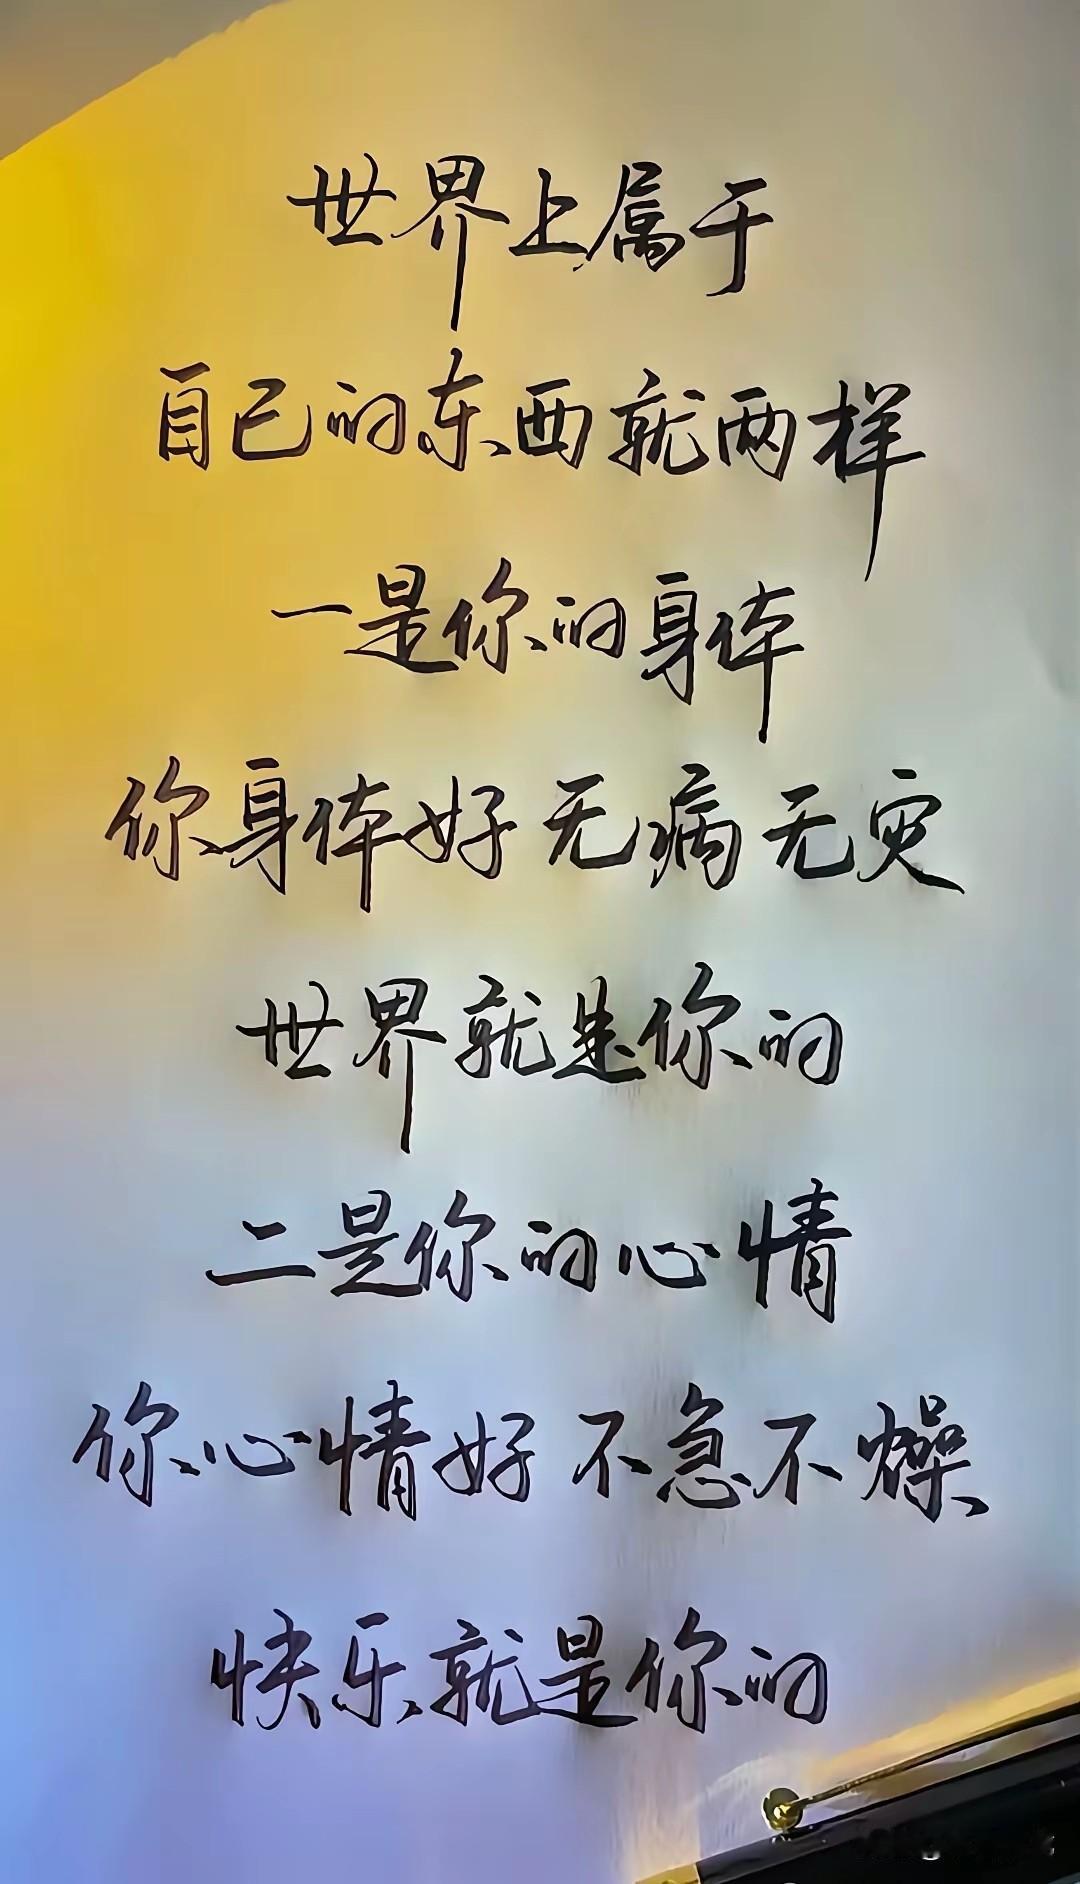 世界上属于
自己的东西就两样
一是你的身体
你身体好无病无灾
世界就是你的
二是你的心情
你心情好不急不燥
快乐就是你的